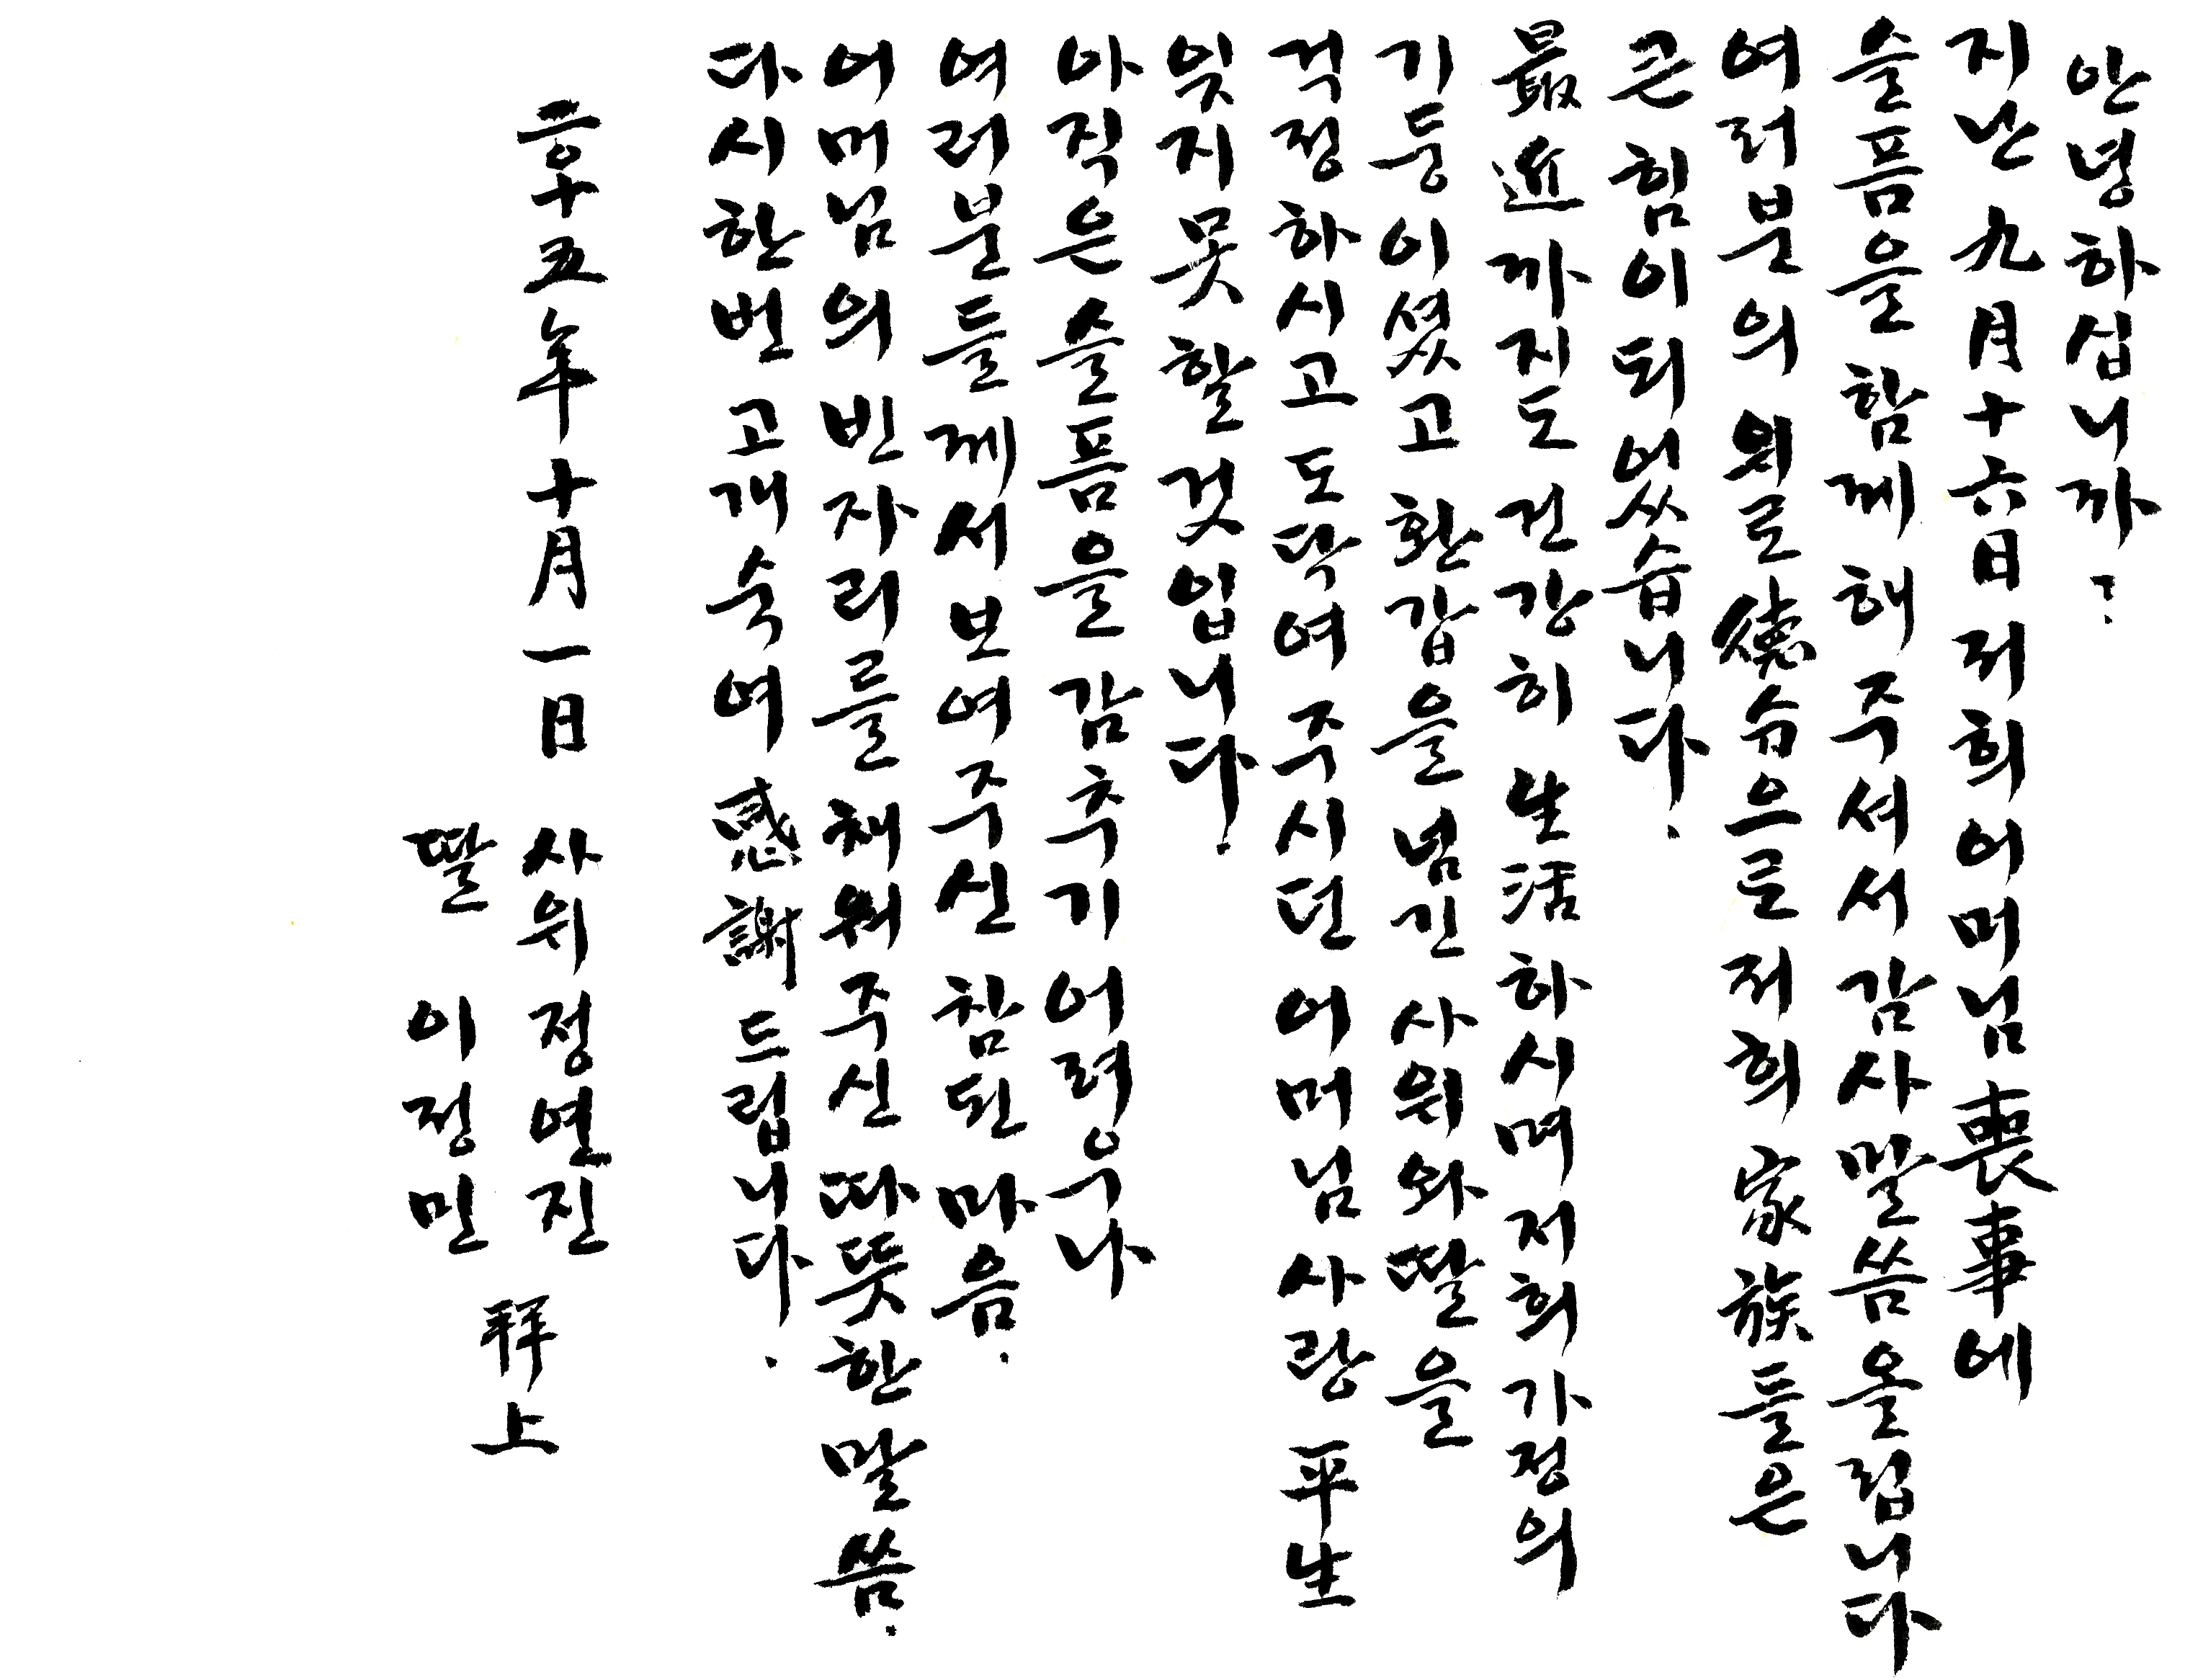 안녕하십니까:
지난 九月十六日 저희 어머님 喪事에
슬픔을 함께 해 주셔서 감사 말씀 올립니다
여러분의 위로 德分으로 저희 家族들은
큰 힘이 되었습니다.
最近까지도 건강히 生活하시며 저희 가정의
기둥이셨고 환갑을 넘긴 사위와 딸을
걱정하시고 도닥여 주시던 어머님 사랑 平生
잊지 못할 것입니다.
아직은 슬픔을 감추기 어려우나
여러분들께서 보여주신 참된 마음.
어머님의 빈자리를 채워주신 따뜻한 말씀.
다시 한번 고개 숙여 感謝드립니다.
二〇十五年 十月 一日 사위 정연진
딸 이정민
拜上